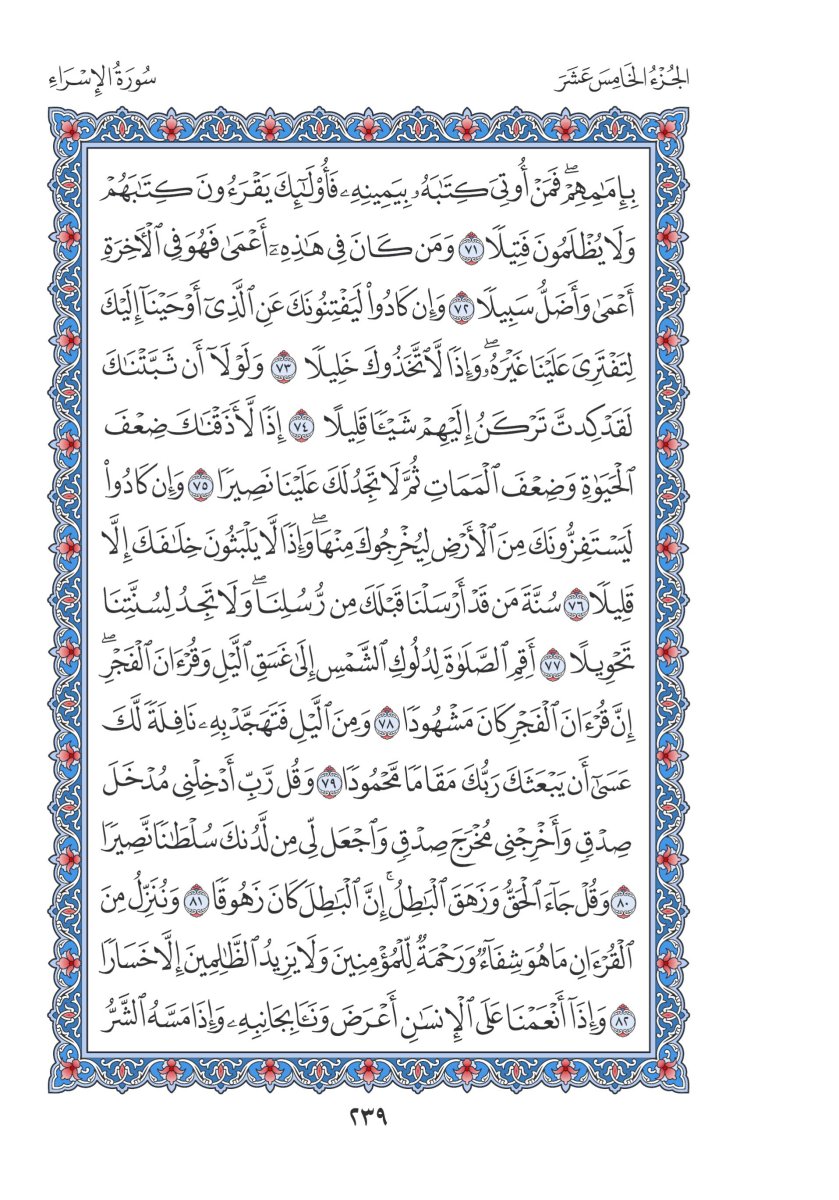 الجُزْءُ الخَامِسَ عَشَرَ
سُورَةُ الإِسْرَاءِ
بِإِمَٰمِهِمْۖ فَمَنْ أُوتِيَ كِتَٰبَهُۥ بِيَمِينِهِۦ فَأُوْلَٰٓئِكَ يَقْرَءُونَ كِتَٰبَهُمْ
وَلَا يُظْلَمُونَ فَتِيلًا ٧١ وَمَن كَانَ فِي هَٰذِهِۦٓ أَعْمَىٰ فَهُوَ فِي الْأٓخِرَةِ
أَعْمَىٰ وَأَضَلُّ سَبِيلًا ٧٢ وَإِن كَادُواْ لَيَفْتِنُونَكَ عَنِ الَّذِيٓ أَوْحَيْنَآ إِلَيْكَ
لِتَفْتَرِيَ عَلَيْنَا غَيْرَهُۥۖ وَإِذًا لَّاتَّخَذُوكَ خَلِيلًا ٧٣ وَلَوْلَآ أَن ثَبَّتْنَٰكَ
لَقَدْ كِدتَّ تَرْكَنُ إِلَيْهِمْ شَيْـًٔا قَلِيلًا ٧٤ إِذًا لَّأَذَقْنَٰكَ ضِعْفَ
الْحَيَوٰةِ وَضِعْفَ الْمَمَاتِ ثُمَّ لَا تَجِدُ لَكَ عَلَيْنَا نَصِيرًا ٧٥ وَإِن كَادُواْ
لَيَسْتَفِزُّونَكَ مِنَ الْأَرْضِ لِيُخْرِجُوكَ مِنْهَاۖ وَإِذًا لَّا يَلْبَثُونَ خِلَٰفَكَ إِلَّا
قَلِيلًا ٧٦ سُنَّةَ مَن قَدْ أَرْسَلْنَا قَبْلَكَ مِن رُّسُلِنَاۖ وَلَا تَجِدُ لِسُنَّتِنَا
تَحْوِيلًا ٧٧ أَقِمِ الصَّلَوٰةَ لِدُلُوكِ الشَّمْسِ إِلَىٰ غَسَقِ الَّيْلِ وَقُرْءَانَ الْفَجْرِۖ
إِنَّ قُرْءَانَ الْفَجْرِ كَانَ مَشْهُودًا ٧٨ وَمِنَ الَّيْلِ فَتَهَجَّدْ بِهِۦ نَافِلَةً لَّكَ
عَسَىٰٓ أَن يَبْعَثَكَ رَبُّكَ مَقَامًا مَّحْمُودًا ٧٩ وَقُل رَّبِّ أَدْخِلْنِي مُدْخَلَ
صِدْقٍ وَأَخْرِجْنِي مُخْرَجَ صِدْقٍ وَاجْعَل لِّي مِن لَّدُنكَ سُلْطَٰنًا نَّصِيرًا
٨٠ وَقُلْ جَآءَ الْحَقُّ وَزَهَقَ الْبَٰطِلُۚ إِنَّ الْبَٰطِلَ كَانَ زَهُوقًا ٨١ وَنُنَزِّلُ مِنَ
الْقُرْءَانِ مَا هُوَ شِفَآءٌ وَرَحْمَةٌ لِّلْمُؤْمِنِينَ وَلَا يَزِيدُ الظَّٰلِمِينَ إِلَّا خَسَارًا
٨٢ وَإِذَآ أَنْعَمْنَا عَلَى الْإِنسَٰنِ أَعْرَضَ وَنَـَٔا بِجَانِبِهِۦ وَإِذَا مَسَّهُ الشَّرُّ
٢٣٩